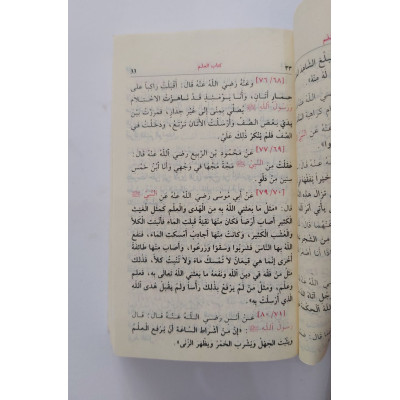 ٣٣ كتاب العلم 33
[٧٦/٦٨] وَعَنْهُ رَضِيَ اللهُ عَنْهُ قَالَ: أَقْبَلْتُ رَاكِباً عَلَى
حِمَارٍ أَتَانٍ، وَأَنَا يَوْمَئِذٍ قَدْ نَاهَزْتُ الاحْتِلَامَ
وَرَسُولُ اللهِ ﷺ يُصَلِّي بِمِنًى إِلَى غَيْرِ جِدَارٍ، فَمَرَرْتُ بَيْنَ
يَدَيْ بَعْضِ الصَّفِّ وَأَرْسَلْتُ الأَتَانَ تَرْتَعُ، وَدَخَلْتُ فِي
الصَّفِّ فَلَمْ يُنْكَرْ ذَلِكَ عَلَيَّ.
[٧٧/٦٩] عَنْ مَحْمُودِ بْنِ الرَّبِيعِ رَضِيَ اللهُ عَنْهُ قَالَ:
عَقَلْتُ مِنَ النَّبِيِّ ﷺ مَجَّةً مَجَّهَا فِي وَجْهِي وَأَنَا ابْنُ خَمْسِ
سِنِينَ مِنْ دَلْوٍ.
[٧٩/٧٠] عَنْ أَبِي مُوسَى رَضِيَ اللهُ عَنْهُ عَنِ النَّبِيِّ ﷺ
قَالَ: «مَثَلُ مَا بَعَثَنِي اللهُ بِهِ مِنَ الْهُدَى وَالْعِلْمِ كَمَثَلِ الْغَيْثِ
الْكَثِيرِ أَصَابَ أَرْضاً فَكَانَ مِنْهَا نَقِيَّةٌ قَبِلَتِ المَاءَ، فَأَنْبَتَتِ الْكَلَأَ
وَالْعُشْبَ الْكَثِيرَ، وَكَانَتْ مِنْهَا أَجَادِبُ أَمْسَكَتِ المَاءَ، فَنَفَعَ
اللهُ بِهَا النَّاسَ فَشَرِبُوا وَسَقَوْا وَزَرَعُوا، وَأَصَابَ مِنْهَا طَائِفَةً
أُخْرَى إِنَّمَا هِيَ قِيعَانٌ لَا تُمْسِكُ مَاءً وَلَا تُنْبِتُ كَلَأً، فَذَلِكَ
مَثَلُ مَنْ فَقُهَ فِي دِينِ اللهِ وَنَفَعَهُ مَا بَعَثَنِي اللهُ تَعَالَى بِهِ فَعَلِمَ
وَعَلَّمَ، وَمَثَلُ مَنْ لَمْ يَرْفَعْ بِذَلِكَ رَأْساً وَلَمْ يَقْبَلْ هُدَى اللهِ
الَّذِي أُرْسِلْتُ بِهِ».
[٨٠/٧١] عَنْ أَنَسٍ رَضِيَ اللهُ عَنْهُ قَالَ: قَالَ
رَسُولُ اللهِ ﷺ: «إِنَّ مِنْ أَشْرَاطِ السَّاعَةِ أَنْ يُرْفَعَ الْعِلْمُ
وَيَثْبُتَ الْجَهْلُ وَيُشْرَبَ الْخَمْرُ وَيَظْهَرَ الزِّنَى».